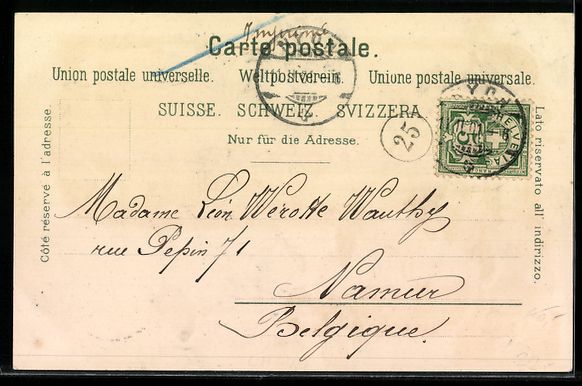 Imprimé
Carte postale.
Union postale universelle. Weltpostverein. Unione postale universale.
SUISSE. SCHWEIZ. SVIZZERA
Nur für die Adresse.
25
HELVETIA
5
Côté réservé à l'adresse.
Lato riservato all' indirizzo.
Madame Léon Wérotte Wauthy
rue Pepin 71
Namur
Belgique.